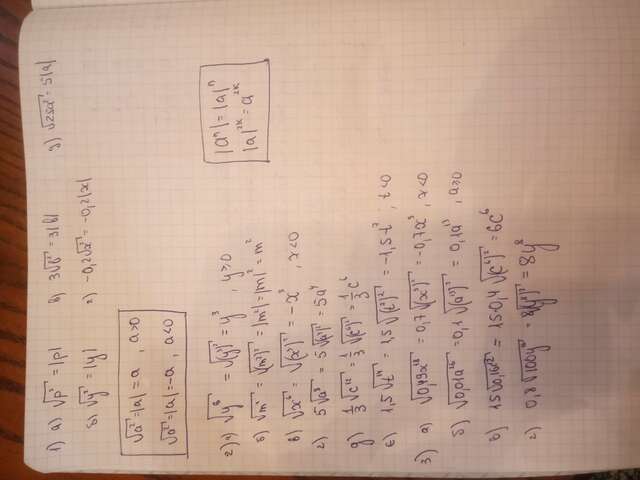 1) а) √p² = |p|   в) 3√b² = 3|b|   д) √25a² = 5|a|
б) √y² = |y|   г) -0,2√x² = -0,2|x|
√a² = |a| = a , a>0
√a² = |a| = -a , a<0
2) а) √y⁶ = √(y³)² = y³ , y≥0
|aⁿ| = |a|ⁿ
|a|²ᵏ = a²ᵏ
б) √m⁴ = √(m²)² = |m²| = |m|² = m²
в) √x⁶ = √(x³)² = -x³ , x<0
г) 5√a⁸ = 5√(a⁴)² = 5a⁴
д) 1/3 √c¹² = 1/3 √(c⁶)² = 1/3 c⁶
е) 1,5√t¹⁴ = 1,5√(t⁷)² = -1,5·t⁷ ; t<0
3.) а) √0,49x¹⁸ = 0,7√(x⁹)² = -0,7x⁹ , x<0
б) √0,01a²⁶ = 0,1√(a¹³)² = 0,1a¹³ , a≥0
в) 15√0,16c¹² = 15·0,4√(c⁶)² = 6c⁶
г) 0,8√100y¹⁶ = 8√(y⁸)² = 8y⁸